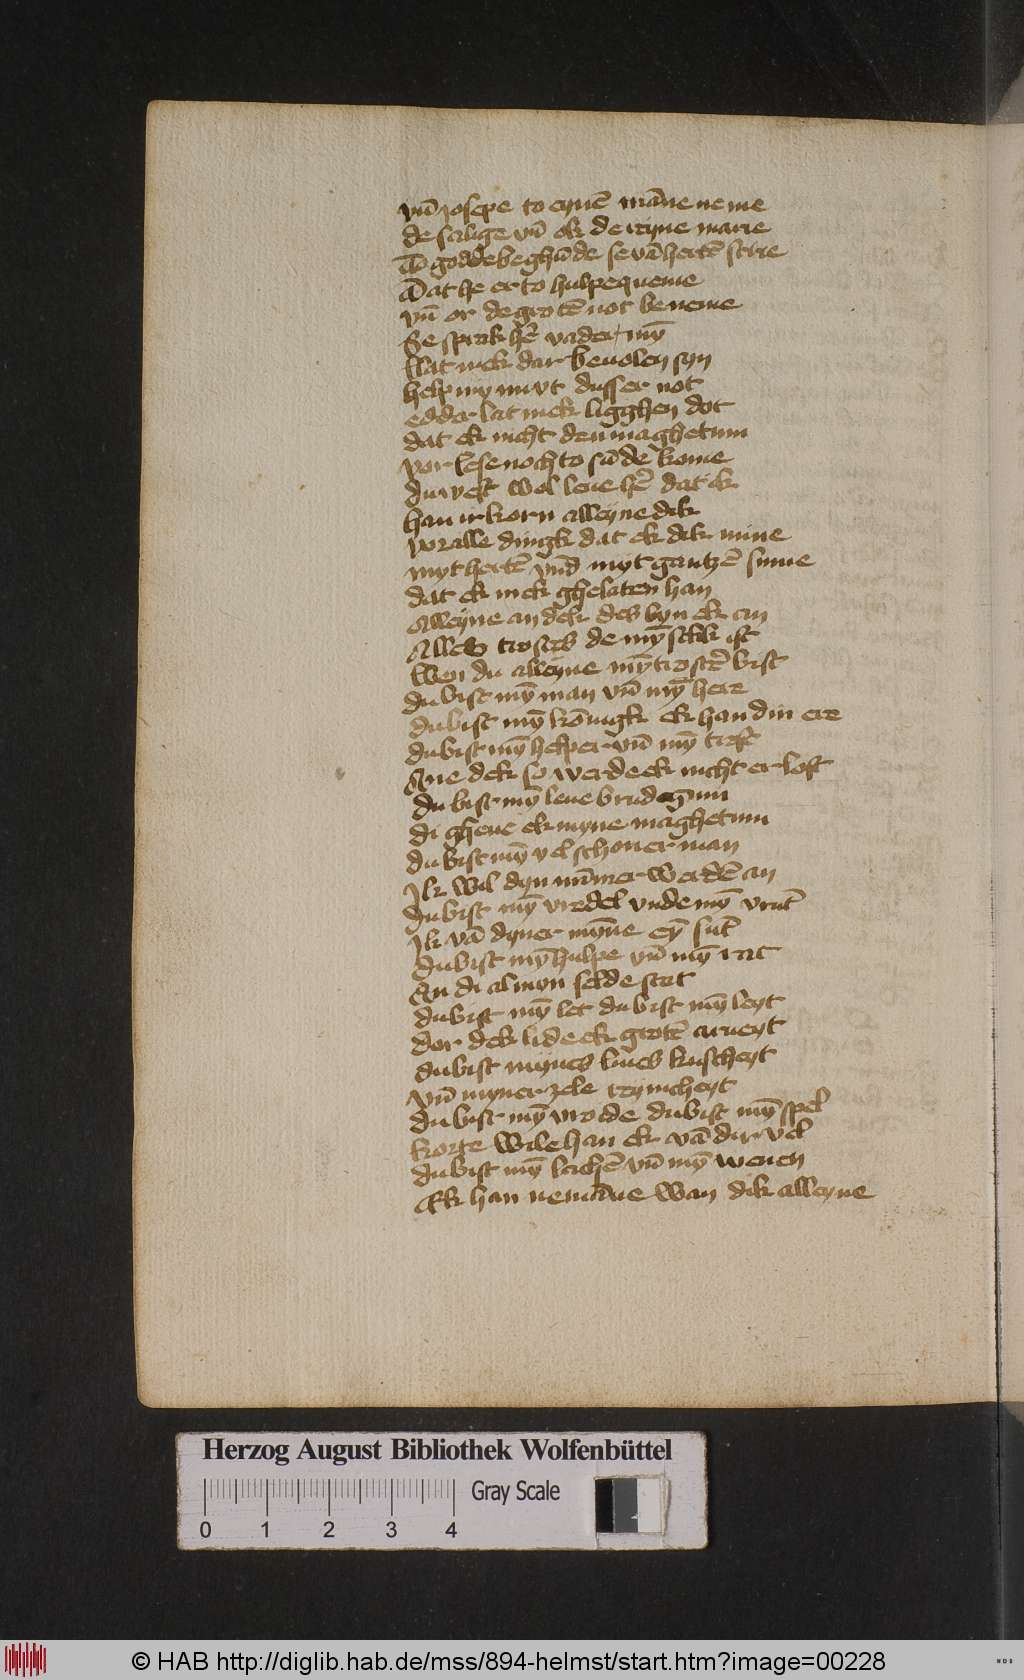 vn̄ josepe to eynē mā̄ne neme
de salige vn̄ ok de reyne marie
To godde beghūde se vā hertē scrie
Dat he er to hulpe queme
vn̄ or de grotē not beneme
Se sprak hē vader myn̄
llat mek dar bevolen syn
help my mitt dusser not
edder lat mek ligghen dot
dat ek nicht den maghetum
vor lese noch to sūde kome
du west wol leue hē dat ik
han irkorn alleyne dik
vor alle dingk dat ek dik mine
myt hertē vnd myt gantzē sinne
dat ek mek ghelaten han
Alleyne an dek des byn ek an
Alles trostes de my schk ist
wen du alleyne myn̄ trostē bist
du bist myn̄ man vn̄ myn̄ here
du bist myn̄ kōnigk ek han din ere
du bist myn̄ helper vn̄ myn̄ trost
Ane dek so werde ek nicht erlost
du bist myn̄ leue brudegum
di gheue ek myne maghetum
du bist myn̄ vel schoner man
Ik wil dyn nūmer werdē an
du bist myn̄ vredel vnde myn̄ vrut
Ik vā dyner mynne eyn̄ sūt
du bist myn̄ hulpe vn̄ myn̄ rat
An di al myn selde stat
du bist myn̄ let du bist myn̄ leyt
dor dek lide ek grotē arueyt
du bist mynes liues kuscheyt
vn̄ myner zele reynicheyt
du bist myn̄ vrotde du bist myn̄ spel
korte wile han ek vā dir vel
du bist myn̄ lachē vn̄ myn̄ wenen
Ek han nemā̄ne wan dik alleyne
Herzog August Bibliothek Wolfenbüttel
Gray Scale
0 1 2 3 4
© HAB http://diglib.hab.de/mss/894-helmst/start.htm?image=00228